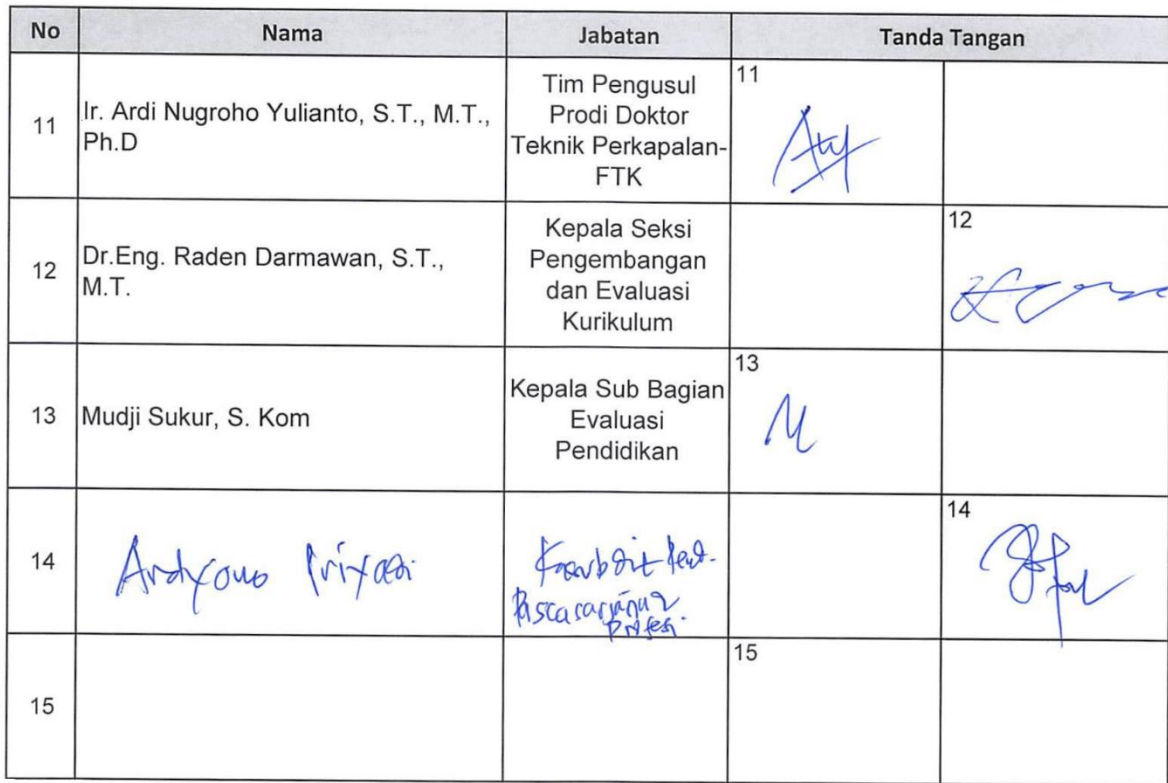 No Nama Jabatan Tanda Tangan
11 Ir. Ardi Nugroho Yulianto, S.T., M.T.,
Ph.D
Tim Pengusul
Prodi Doktor
Teknik Perkapalan-
FTK
11
12 Dr.Eng. Raden Darmawan, S.T.,
M.T.
Kepala Seksi
Pengembangan
dan Evaluasi
Kurikulum
12
13 Mudji Sukur, S. Kom
Kepala Sub Bagian
Evaluasi
Pendidikan
13
14 Ardyono Priyadi
Pascasarjana
Profesi
14
15
15